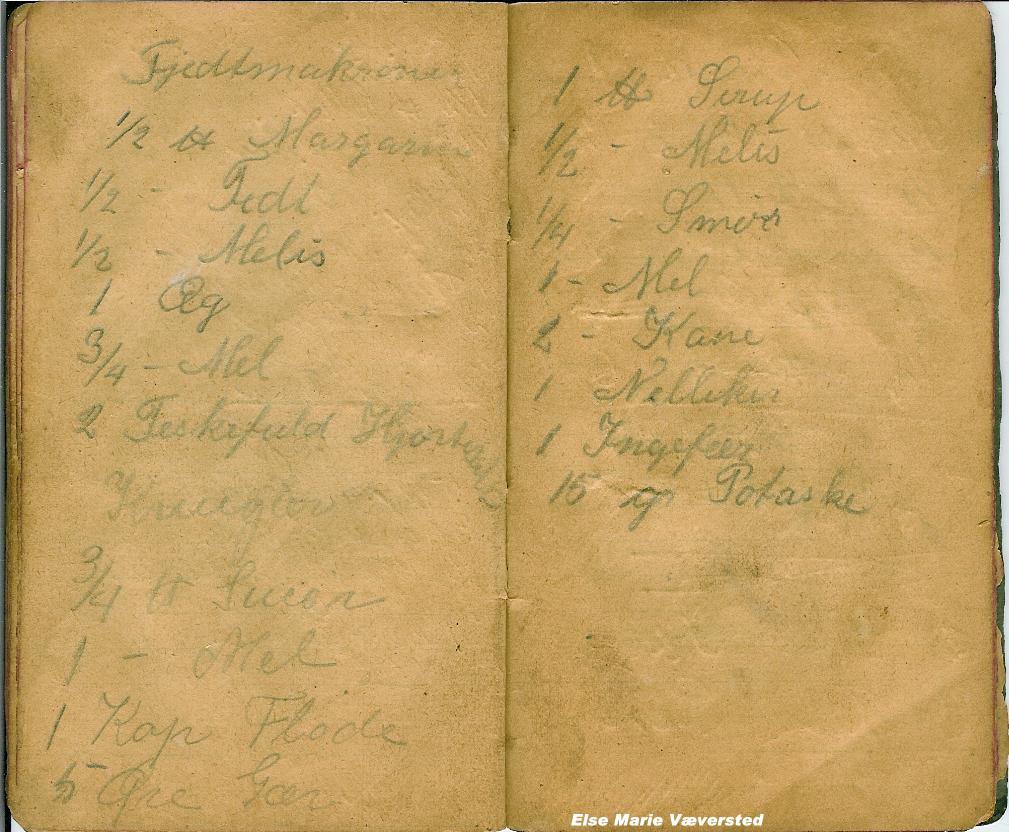 Fjedtmakroner
1/2 ℔ Margarin
1/2 - Fedt
1/2 - Melis
1 Æg
3/4 - Mel
2 Teskefuld Hjortetak
3/4 ℔ Smør
1 - Mel
1 Kop Fløde
5 Øre Gær
1 ℔ Sirup
1/2 - Melis
1/4 - Smør
1 - Mel
2 - Kane
1 Nelliker
1 Ingefær
15 gr Potaske
Else Marie Væversted